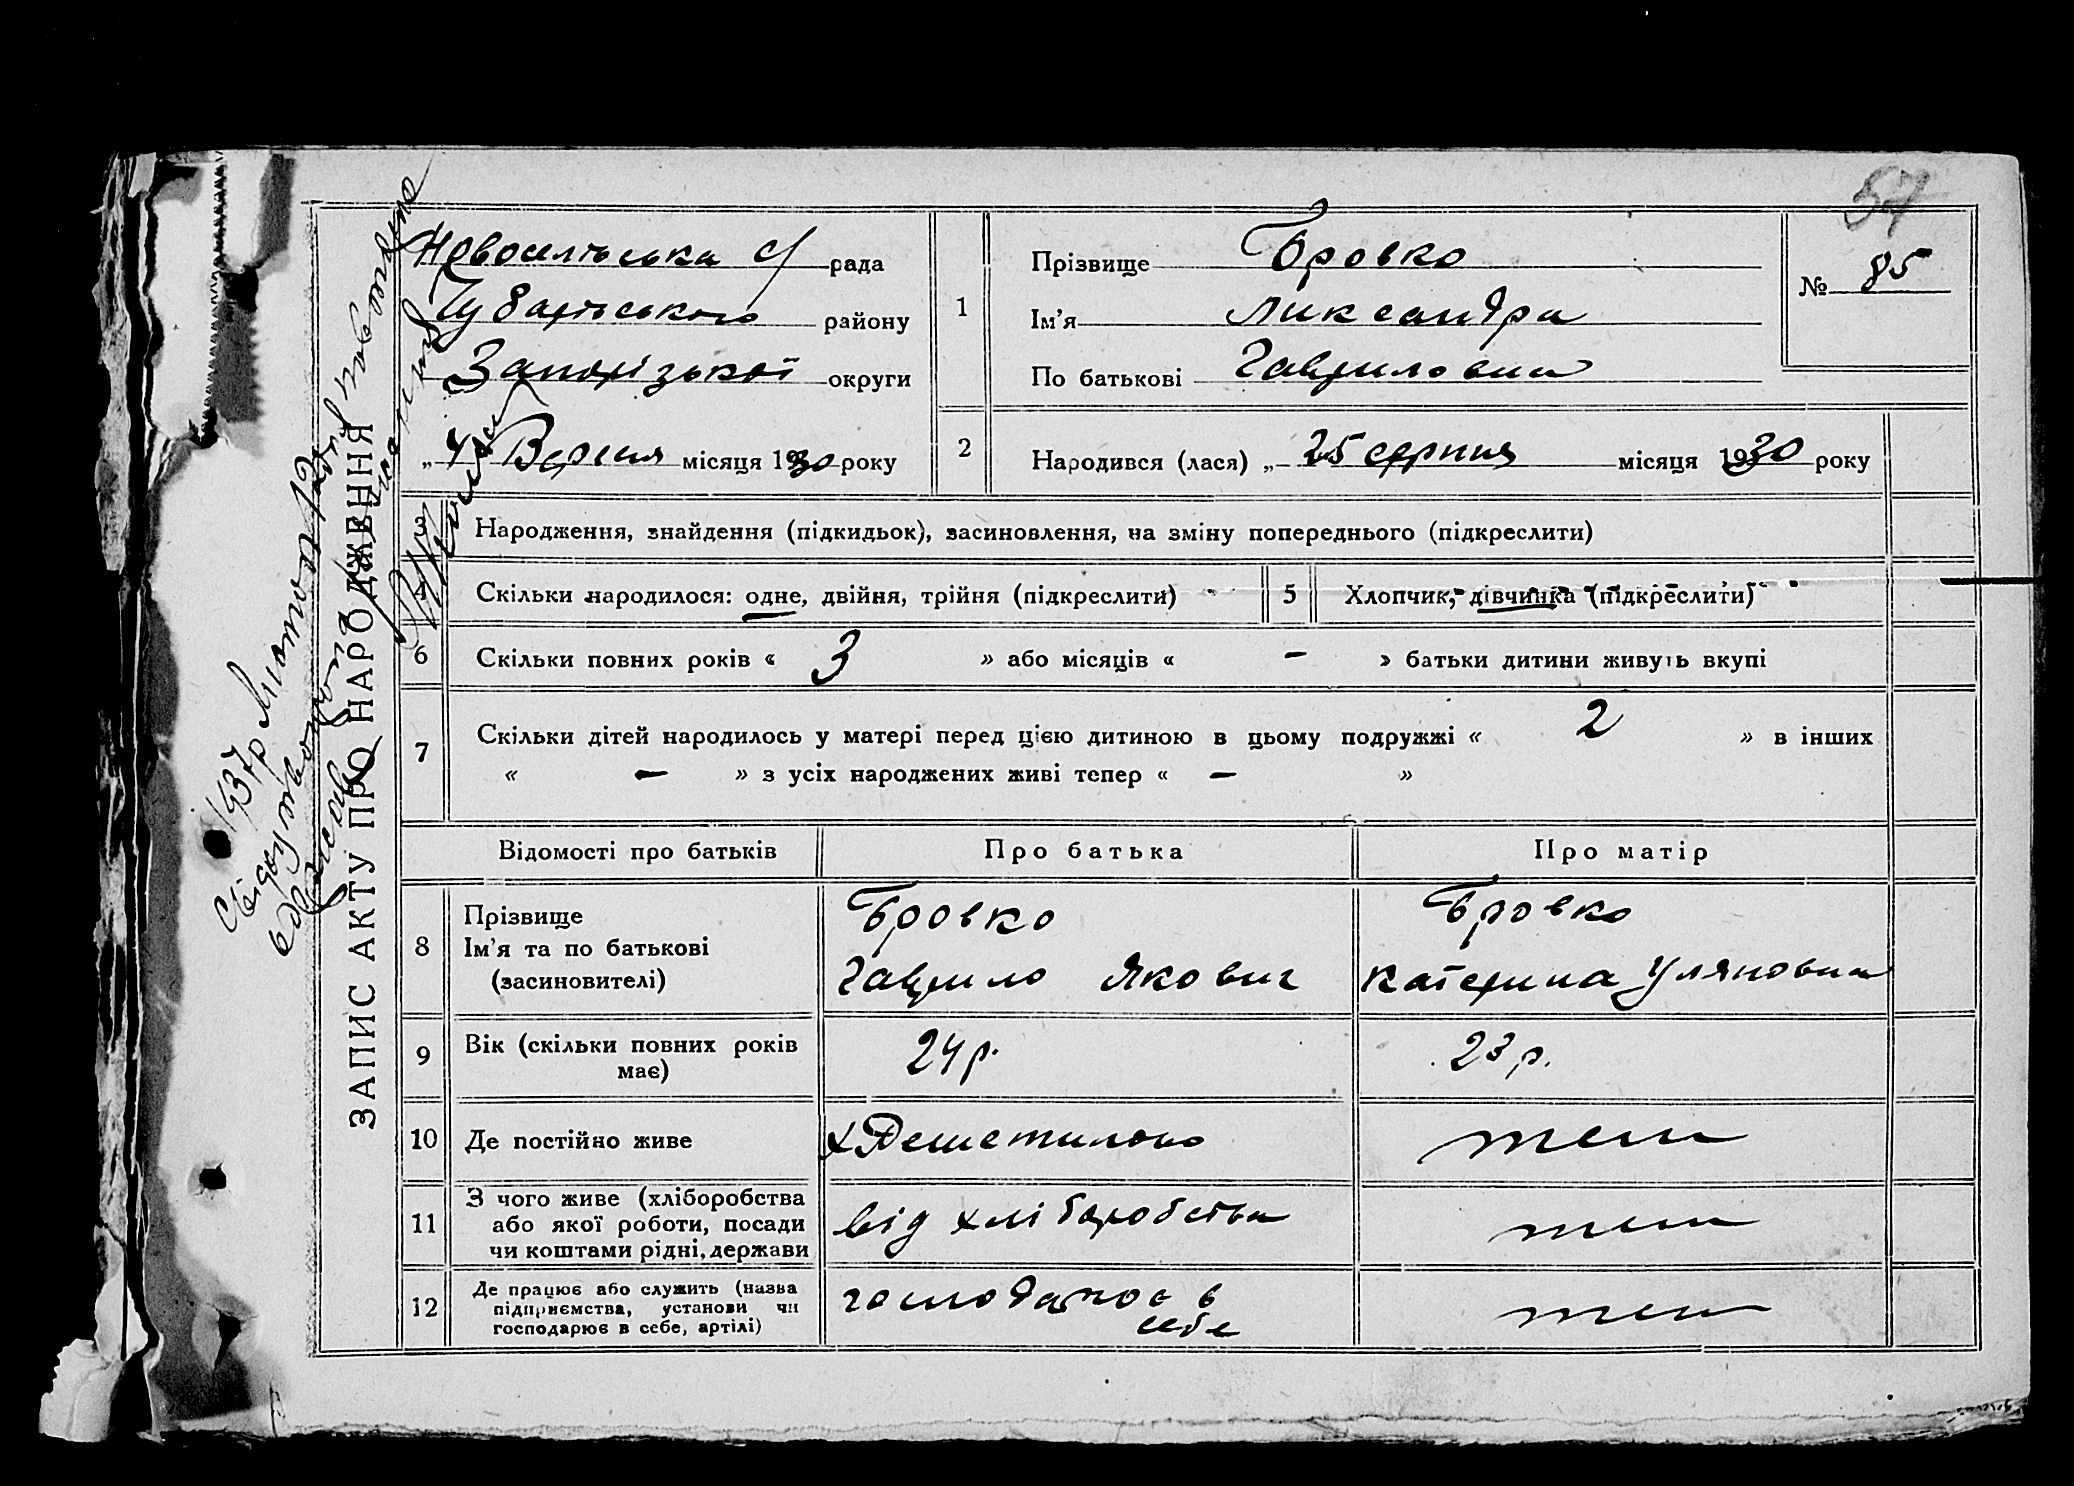 57
Новосілівська с/ рада
Чубарівського району
Запорізької округи
„4" Вересня місяця 1930 року
1
Прізвище Бровко
Ім'я Ликсандра
По батькові Гавриловна
№ 85
2
Народився (лася) „25 серпня місяця 1930 року
3
Народження, знайдення (підкидьок), засиновлення, на зміну попереднього (підкреслити)
4
Скільки народилося: одне, двійня, трійня (підкреслити)
5
Хлопчик, дівчинка (підкреслити)
6
Скільки повних років « 3 » або місяців « - » батьки дитини живуть вкупі
7
Скільки дітей народилось у матері перед цією дитиною в цьому подружжі « 2 » в інших
« — » з усіх народжених живі тепер « — »
Відомості про батьків
Про батька
Про матір
8
Прізвище
Ім'я та по батькові
(засиновителі)
Бровко
Гаврило Якович
Бровко
Катерина Уляновна
9
Вік (скільки повних років
має)
24 р.
23 р.
10
Де постійно живе
х Решетилово
теш
11
З чого живе (хліборобства
або якої роботи, посади
чи коштами рідні, держави
від хліборобства
теш
12
Де працює або служить (назва
підприємства, установи чи
господарює в себе, артілі)
господарює в
себе
теш
ЗАПИС АКТУ ПРО НАРОДЖЕННЯ
1937 р Лютого
Свідоцтво